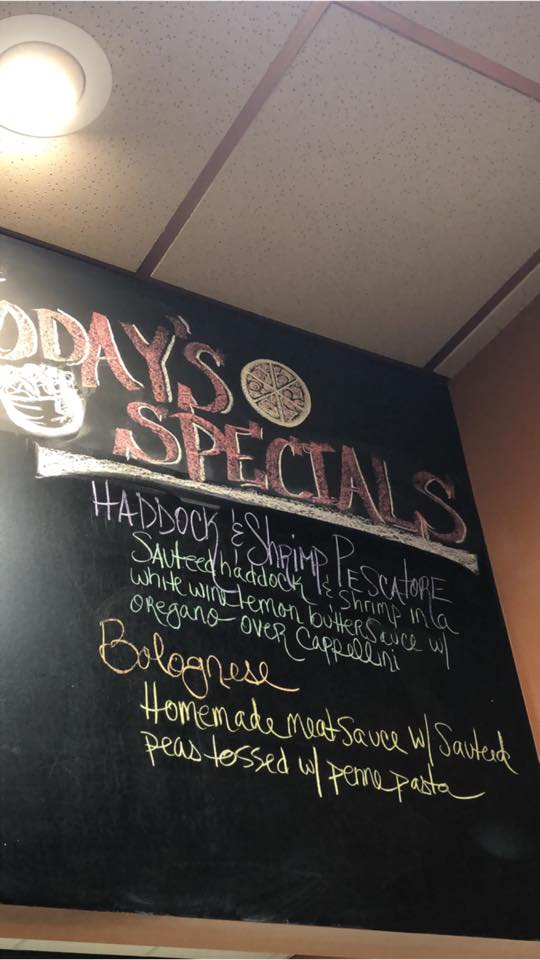 TODAY'S
SPECIALS
HADDOCK & Shrimp PESCATORE
Sauteed haddock & shrimp in a
white wine lemon butter sauce w/
oregano over Cappellini
Bolognese
Homemade meat sauce w/ Sauteed
peas tossed w/ penne pasta